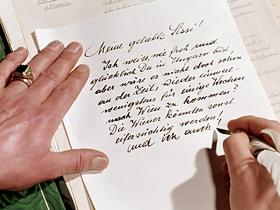 Meine geliebte Sissi!
Ich weiss, wie froh und
glücklich Du in Ungarn bist,
aber wäre es nicht doch schon
an der Zeit, wieder einmal
wenigstens für einige Wochen
nach Wien zu kommen?
Die Wiener könnten sonst
eifersüchtig werden,
und ich auch!